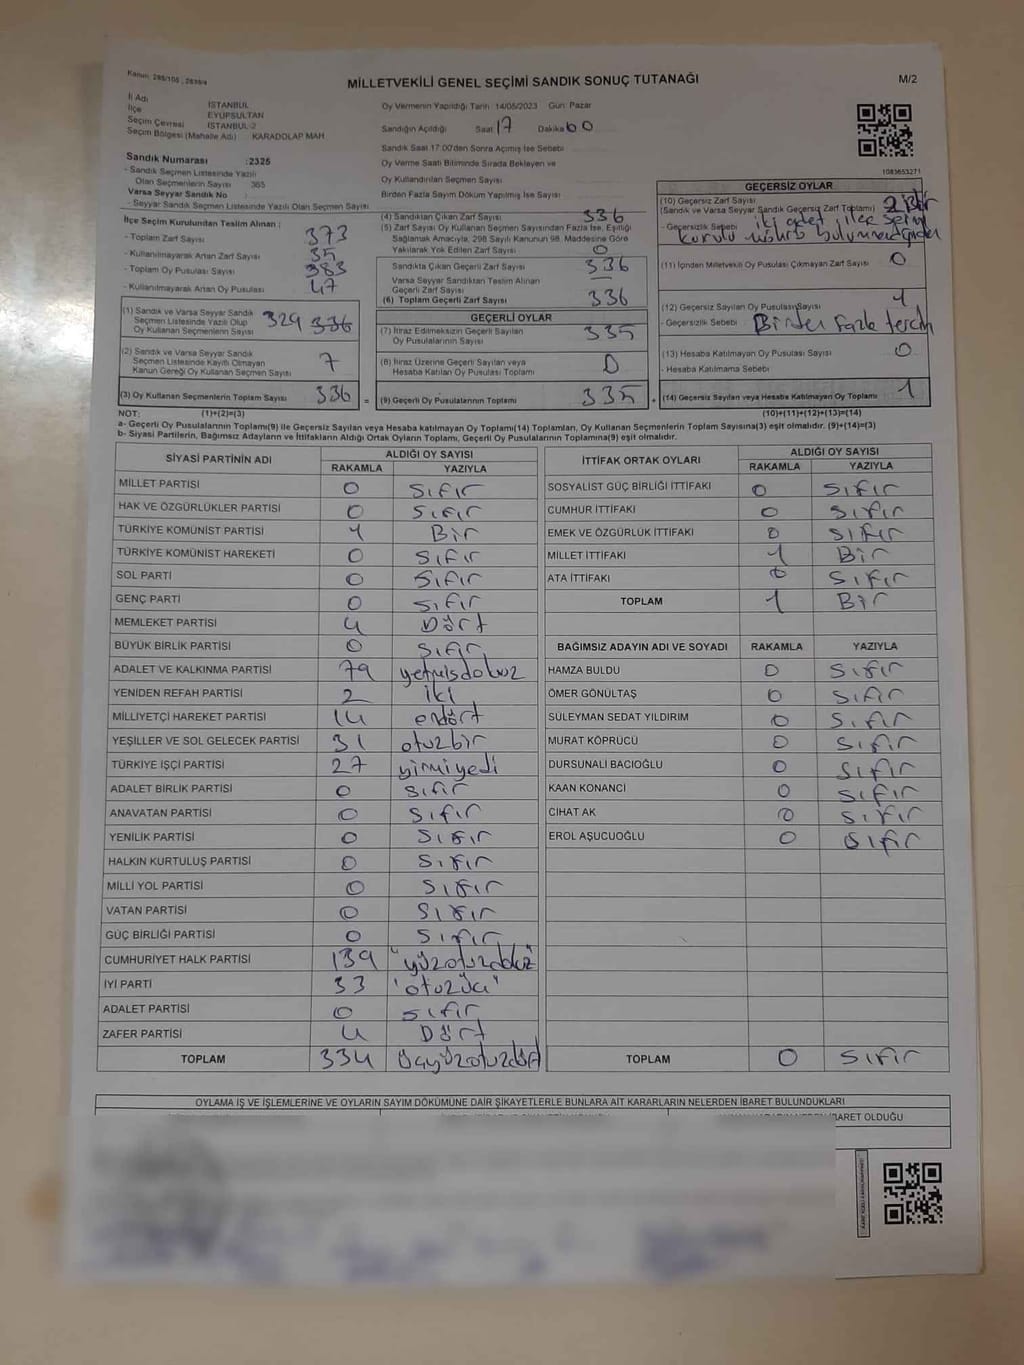 Kanun: 298/105 , 2839/4
MİLLETVEKİLİ GENEL SEÇİMİ SANDIK SONUÇ TUTANAĞI
M/2
İl Adı İSTANBUL
İlçe EYÜPSULTAN
Seçim Çevresi İSTANBUL-2
Seçim Bölgesi (Mahalle Adı) : KARADOLAP MAH
Sandık Numarası :2325
- Sandık Seçmen Listesinde Yazılı
Olan Seçmenlerin Sayısı 365
Varsa Seyyar Sandık No
- Seyyar Sandık Seçmen Listesinde Yazılı Olan Seçmen Sayısı
Oy Vermenin Yapıldığı Tarih 14/05/2023 Gün: Pazar
Sandığın Açıldığı Saat 17 Dakika 60
Sandık Saat 17:00'den Sonra Açılmış İse Sebebi
Oy Verme Saati Bitiminde Sırada Bekleyen ve
Oy Kullandırılan Seçmen Sayısı
Birden Fazla Sayım Döküm Yapılmış İse Sayısı
1083653271
İlçe Seçim Kurulundan Teslim Alınan :
- Toplam Zarf Sayısı 373
- Kullanılmayarak Artan Zarf Sayısı 35
- Toplam Oy Pusulası Sayısı 383
- Kullanılmayarak Artan Oy Pusulası 47
(1) Sandık ve Varsa Seyyar Sandık
Seçmen Listesinde Yazılı Olup
Oy Kullanan Seçmenlerin Sayısı 329 336
(2) Sandık ve Varsa Seyyar Sandık
Seçmen Listesinde Kayıtlı Olmayan
Kanun Gereği Oy Kullanan Seçmen Sayısı 7
(3) Oy Kullanan Seçmenlerin Toplam Sayısı 336 =
(4) Sandıktan Çıkan Zarf Sayısı 336
(5) Zarf Sayısı Oy Kullanan Seçmen Sayısından Fazla İse, Eşitliği
Sağlamak Amacıyla, 298 Sayılı Kanunun 98. Maddesine Göre
Yakılarak Yok Edilen Zarf Sayısı 0
Sandıkta Çıkan Geçerli Zarf Sayısı 336
Varsa Seyyar Sandıktan Teslim Alınan
Geçerli Zarf Sayısı
(6) Toplam Geçerli Zarf Sayısı 336
GEÇERLİ OYLAR
(7) İtiraz Edilmeksizin Geçerli Sayılan
Oy Pusulalarının Sayısı 335
(8) İtiraz Üzerine Geçerli Sayılan veya
Hesaba Katılan Oy Pusulası Toplamı 0
(9) Geçerli Oy Pusulalarının Toplamı 335 +
GEÇERSİZ OYLAR
(10) Geçersiz Zarf Sayısı
(Sandık ve Varsa Seyyar Sandık Geçersiz Zarf Toplamı)
- Geçersizlik Sebebi iki adet ilçe seçim
kurulu mührü bulunmadığından
(11) İçinden Milletvekili Oy Pusulası Çıkmayan Zarf Sayısı 0
(12) Geçersiz Sayılan Oy Pusulası Sayısı 1
- Geçersizlik Sebebi Birden fazla tercih
(13) Hesaba Katılmayan Oy Pusulası Sayısı 0
- Hesaba Katılmama Sebebi
(14) Geçersiz Sayılan veya Hesaba Katılmayan Oy Toplamı 1
NOT: (1)+(2)=(3) (10)+(11)+(12)+(13)=(14)
a- Geçerli Oy Pusulalarının Toplamı(9) ile Geçersiz Sayılan veya Hesaba Katılmayan Oy Toplamı(14) Toplamları, Oy Kullanan Seçmenlerin Toplam Sayısına(3) eşit olmalıdır. (9)+(14)=(3)
b- Siyasi Partilerin, Bağımsız Adayların ve İttifakların Aldığı Ortak Oyların Toplamı, Geçerli Oy Pusulalarının Toplamına(9) eşit olmalıdır.
SİYASİ PARTİNİN ADI ALDIĞI OY SAYISI
RAKAMLA YAZIYLA
MİLLET PARTİSİ 0 Sıfır
HAK VE ÖZGÜRLÜKLER PARTİSİ 0 Sıfır
TÜRKİYE KOMÜNİST PARTİSİ 1 Bir
TÜRKİYE KOMÜNİST HAREKETİ 0 Sıfır
SOL PARTİ 0 Sıfır
GENÇ PARTİ 0 Sıfır
MEMLEKET PARTİSİ 4 Dört
BÜYÜK BİRLİK PARTİSİ 0 Sıfır
ADALET VE KALKINMA PARTİSİ 79 yetmişdokuz
YENİDEN REFAH PARTİSİ 2 iki
MİLLİYETÇİ HAREKET PARTİSİ 14 ondört
YEŞİLLER VE SOL GELECEK PARTİSİ 31 otuzbir
TÜRKİYE İŞÇİ PARTİSİ 27 yirmiyedi
ADALET BİRLİK PARTİSİ 0 Sıfır
ANAVATAN PARTİSİ 0 Sıfır
YENİLİK PARTİSİ 0 Sıfır
HALKIN KURTULUŞ PARTİSİ 0 Sıfır
MİLLİ YOL PARTİSİ 0 Sıfır
VATAN PARTİSİ 0 Sıfır
GÜÇ BİRLİĞİ PARTİSİ 0 Sıfır
CUMHURİYET HALK PARTİSİ 139 "yüzotuzdokuz"
İYİ PARTİ 33 "otuzüç"
ADALET PARTİSİ 0 Sıfır
ZAFER PARTİSİ 4 Dört
TOPLAM 334 üçyüzotuzdört
İTTİFAK ORTAK OYLARI ALDIĞI OY SAYISI
RAKAMLA YAZIYLA
SOSYALİST GÜÇ BİRLİĞİ İTTİFAKI 0 Sıfır
CUMHUR İTTİFAKI 0 Sıfır
EMEK VE ÖZGÜRLÜK İTTİFAKI 0 Sıfır
MİLLET İTTİFAKI 1 Bir
ATA İTTİFAKI 0 Sıfır
TOPLAM 1 Bir
BAĞIMSIZ ADAYIN ADI VE SOYADI RAKAMLA YAZIYLA
HAMZA BULDU 0 Sıfır
ÖMER GÖNÜLTAŞ 0 Sıfır
SÜLEYMAN SEDAT YILDIRIM 0 Sıfır
MURAT KÖPRÜCÜ 0 Sıfır
DURSUNALİ BACIOĞLU 0 Sıfır
KAAN KONANCİ 0 Sıfır
CİHAT AK 0 Sıfır
EROL AŞUCUOĞLU 0 Sıfır
TOPLAM 0 Sıfır
OYLAMA İŞ VE İŞLEMLERİNE VE OYLARIN SAYIM DÖKÜMÜNE DAİR ŞİKAYETLERLE BUNLARA AİT KARARLARIN NELERDEN İBARET BULUNDUKLARI
İBARET OLDUĞU